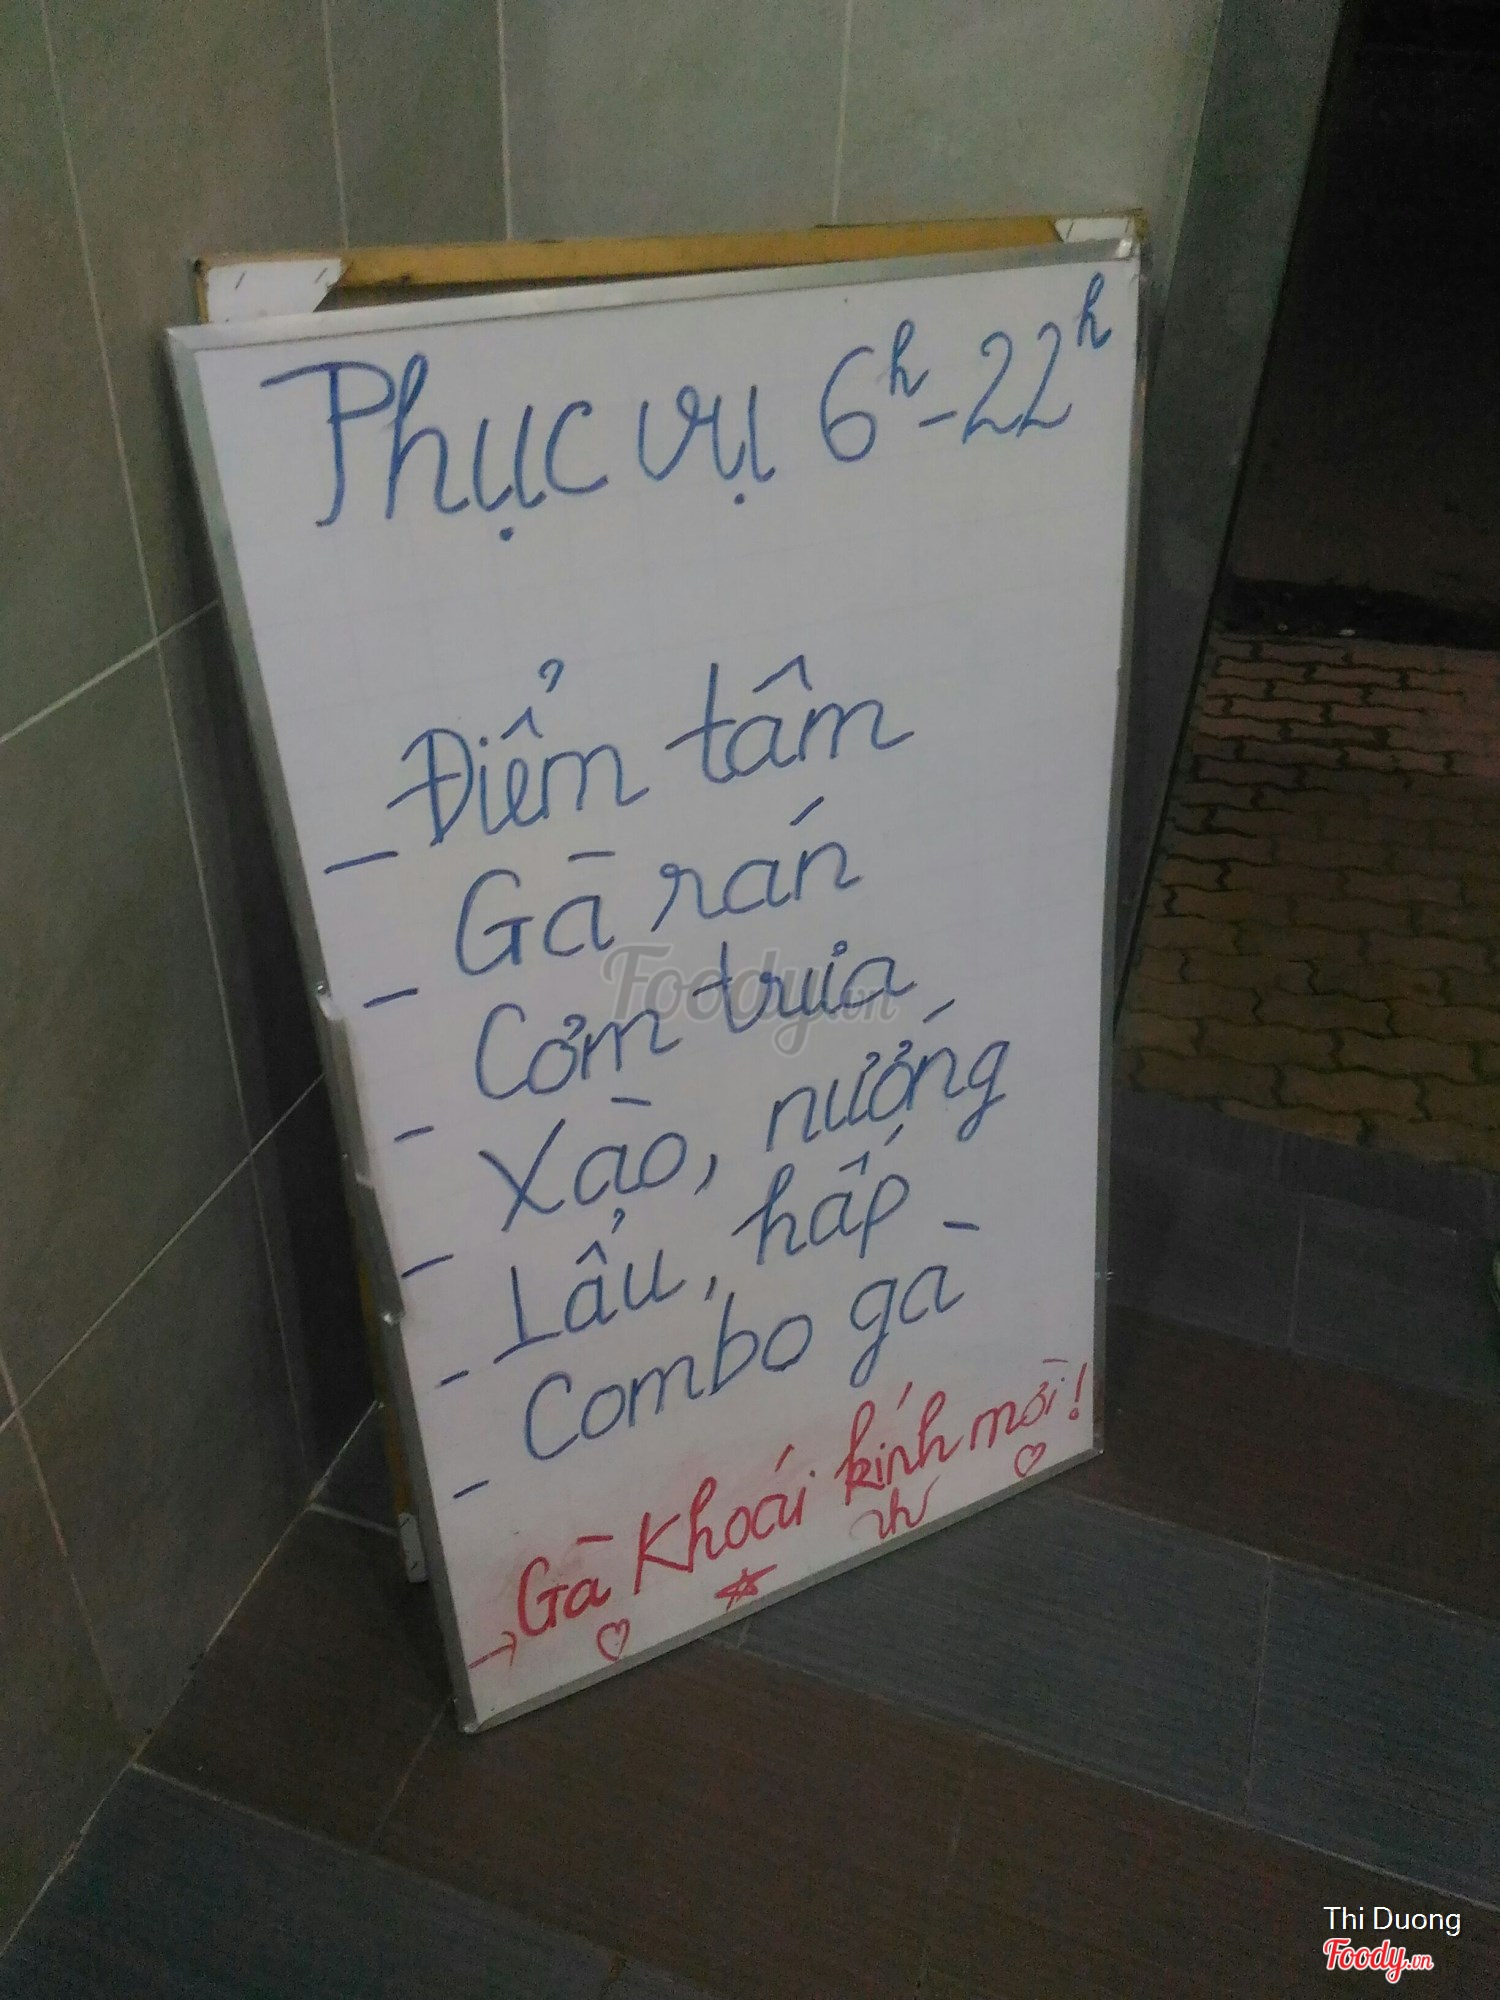 Phục vụ 6h-22h
- Điểm tâm
- Gà rán
- Cơm trưa
- Xào, nướng
- Lẩu, hấp
- Combo gà
→ Gà Khoái kính mời!
Foody.vn
Thi Duong
Foody.vn